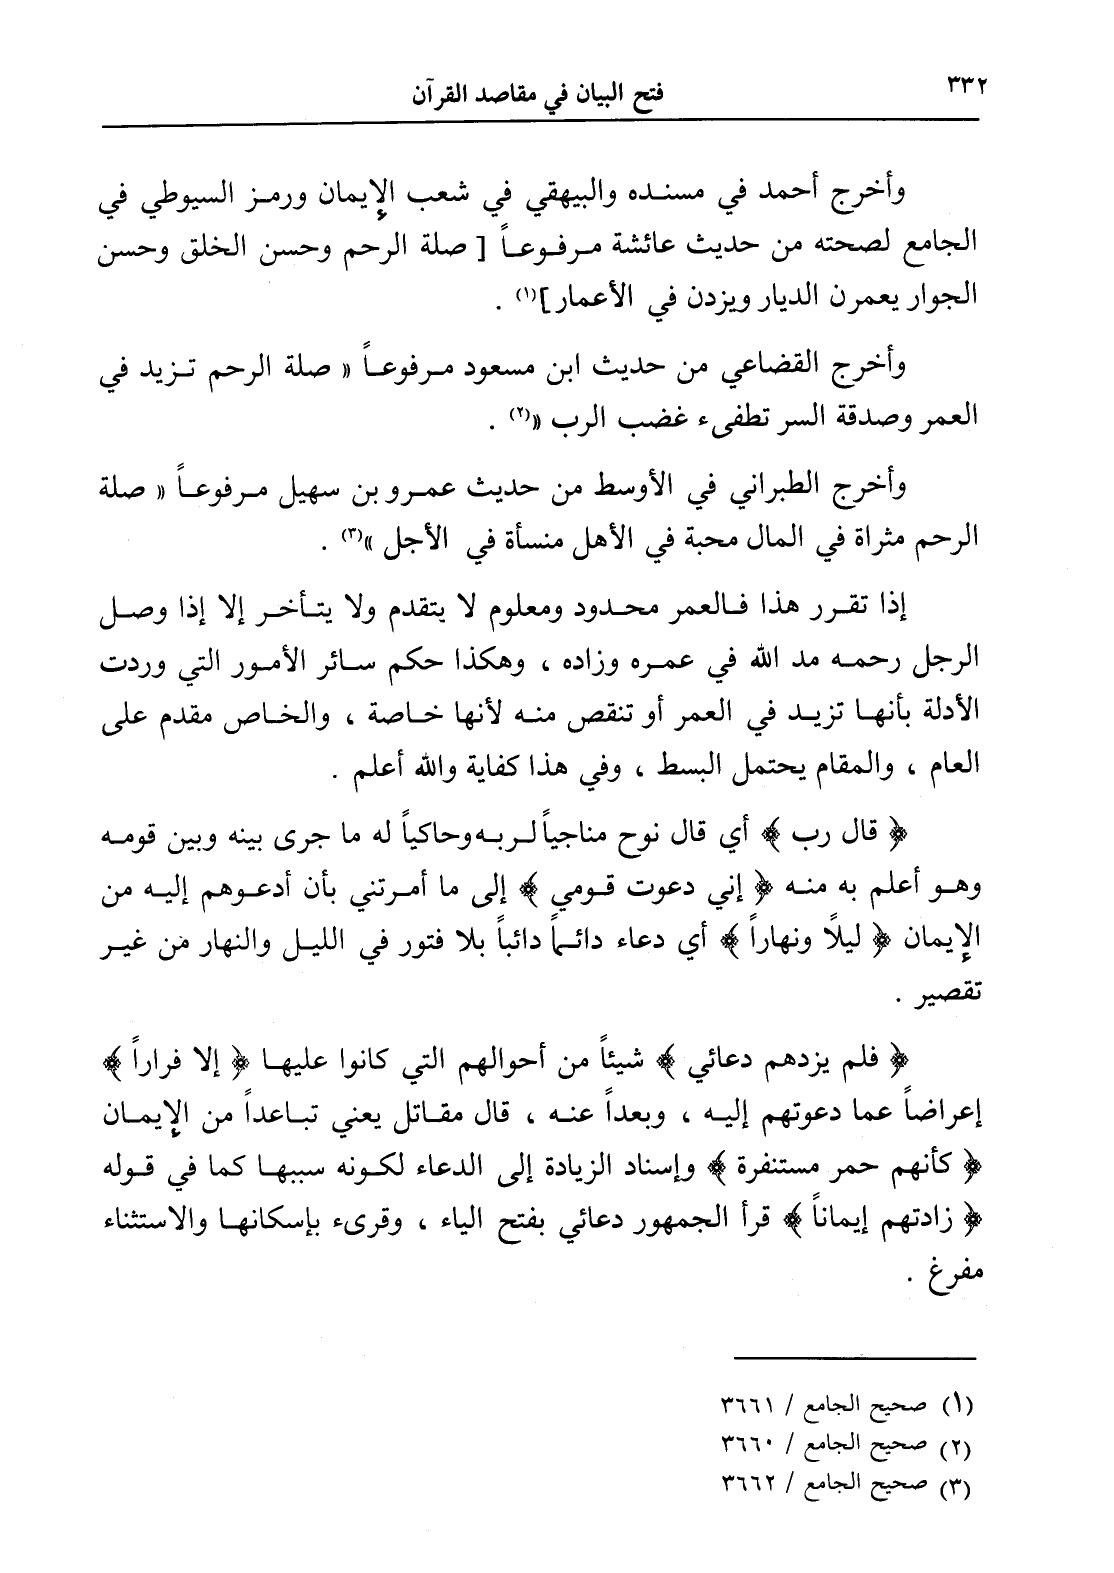 ٣٣٢
فتح البيان في مقاصد القرآن
وأخرج أحمد في مسنده والبيهقي في شعب الإيمان ورمز السيوطي في
الجامع لصحته من حديث عائشة مرفوعاً [ صلة الرحم وحسن الخلق وحسن
الجوار يعمرن الديار ويزدن في الأعمار ](١) .
وأخرج القضاعي من حديث ابن مسعود مرفوعاً « صلة الرحم تزيد في
العمر وصدقة السر تطفىء غضب الرب »(٢) .
وأخرج الطبراني في الأوسط من حديث عمرو بن سهيل مرفوعاً « صلة
الرحم مثراة في المال محبة في الأهل منسأة في الأجل »(٣) .
إذا تقرر هذا فالعمر محدود ومعلوم لا يتقدم ولا يتأخر إلا إذا وصل
الرجل رحمه مد الله في عمره وزاده ، وهكذا حكم سائر الأمور التي وردت
الأدلة بأنها تزيد في العمر أو تنقص منه لأنها خاصة ، والخاص مقدم على
العام ، والمقام يحتمل البسط ، وفي هذا كفاية والله أعلم .
﴿ قال رب ﴾ أي قال نوح مناجياً لربه وحاكياً له ما جرى بينه وبين قومه
وهو أعلم به منه ﴿ إني دعوت قومي ﴾ إلى ما أمرتني بأن أدعوهم إليه من
الإيمان ﴿ ليلاً ونهاراً ﴾ أي دعاء دائماً دائباً بلا فتور في الليل والنهار من غير
تقصير .
﴿ فلم يزدهم دعائي ﴾ شيئاً من أحوالهم التي كانوا عليها ﴿ إلا فراراً ﴾
إعراضاً عما دعوتهم إليه ، وبعداً عنه ، قال مقاتل يعني تباعداً من الإيمان
﴿ كأنهم حمر مستنفرة ﴾ وإسناد الزيادة إلى الدعاء لكونه سببها كما في قوله
﴿ زادتهم إيماناً ﴾ قرأ الجمهور دعائي بفتح الياء ، وقرىء بإسكانها والاستثناء
مفرغ .
(١) صحيح الجامع / ٣٦٦١
(٢) صحيح الجامع / ٣٦٦٠
(٣) صحيح الجامع / ٣٦٦٢